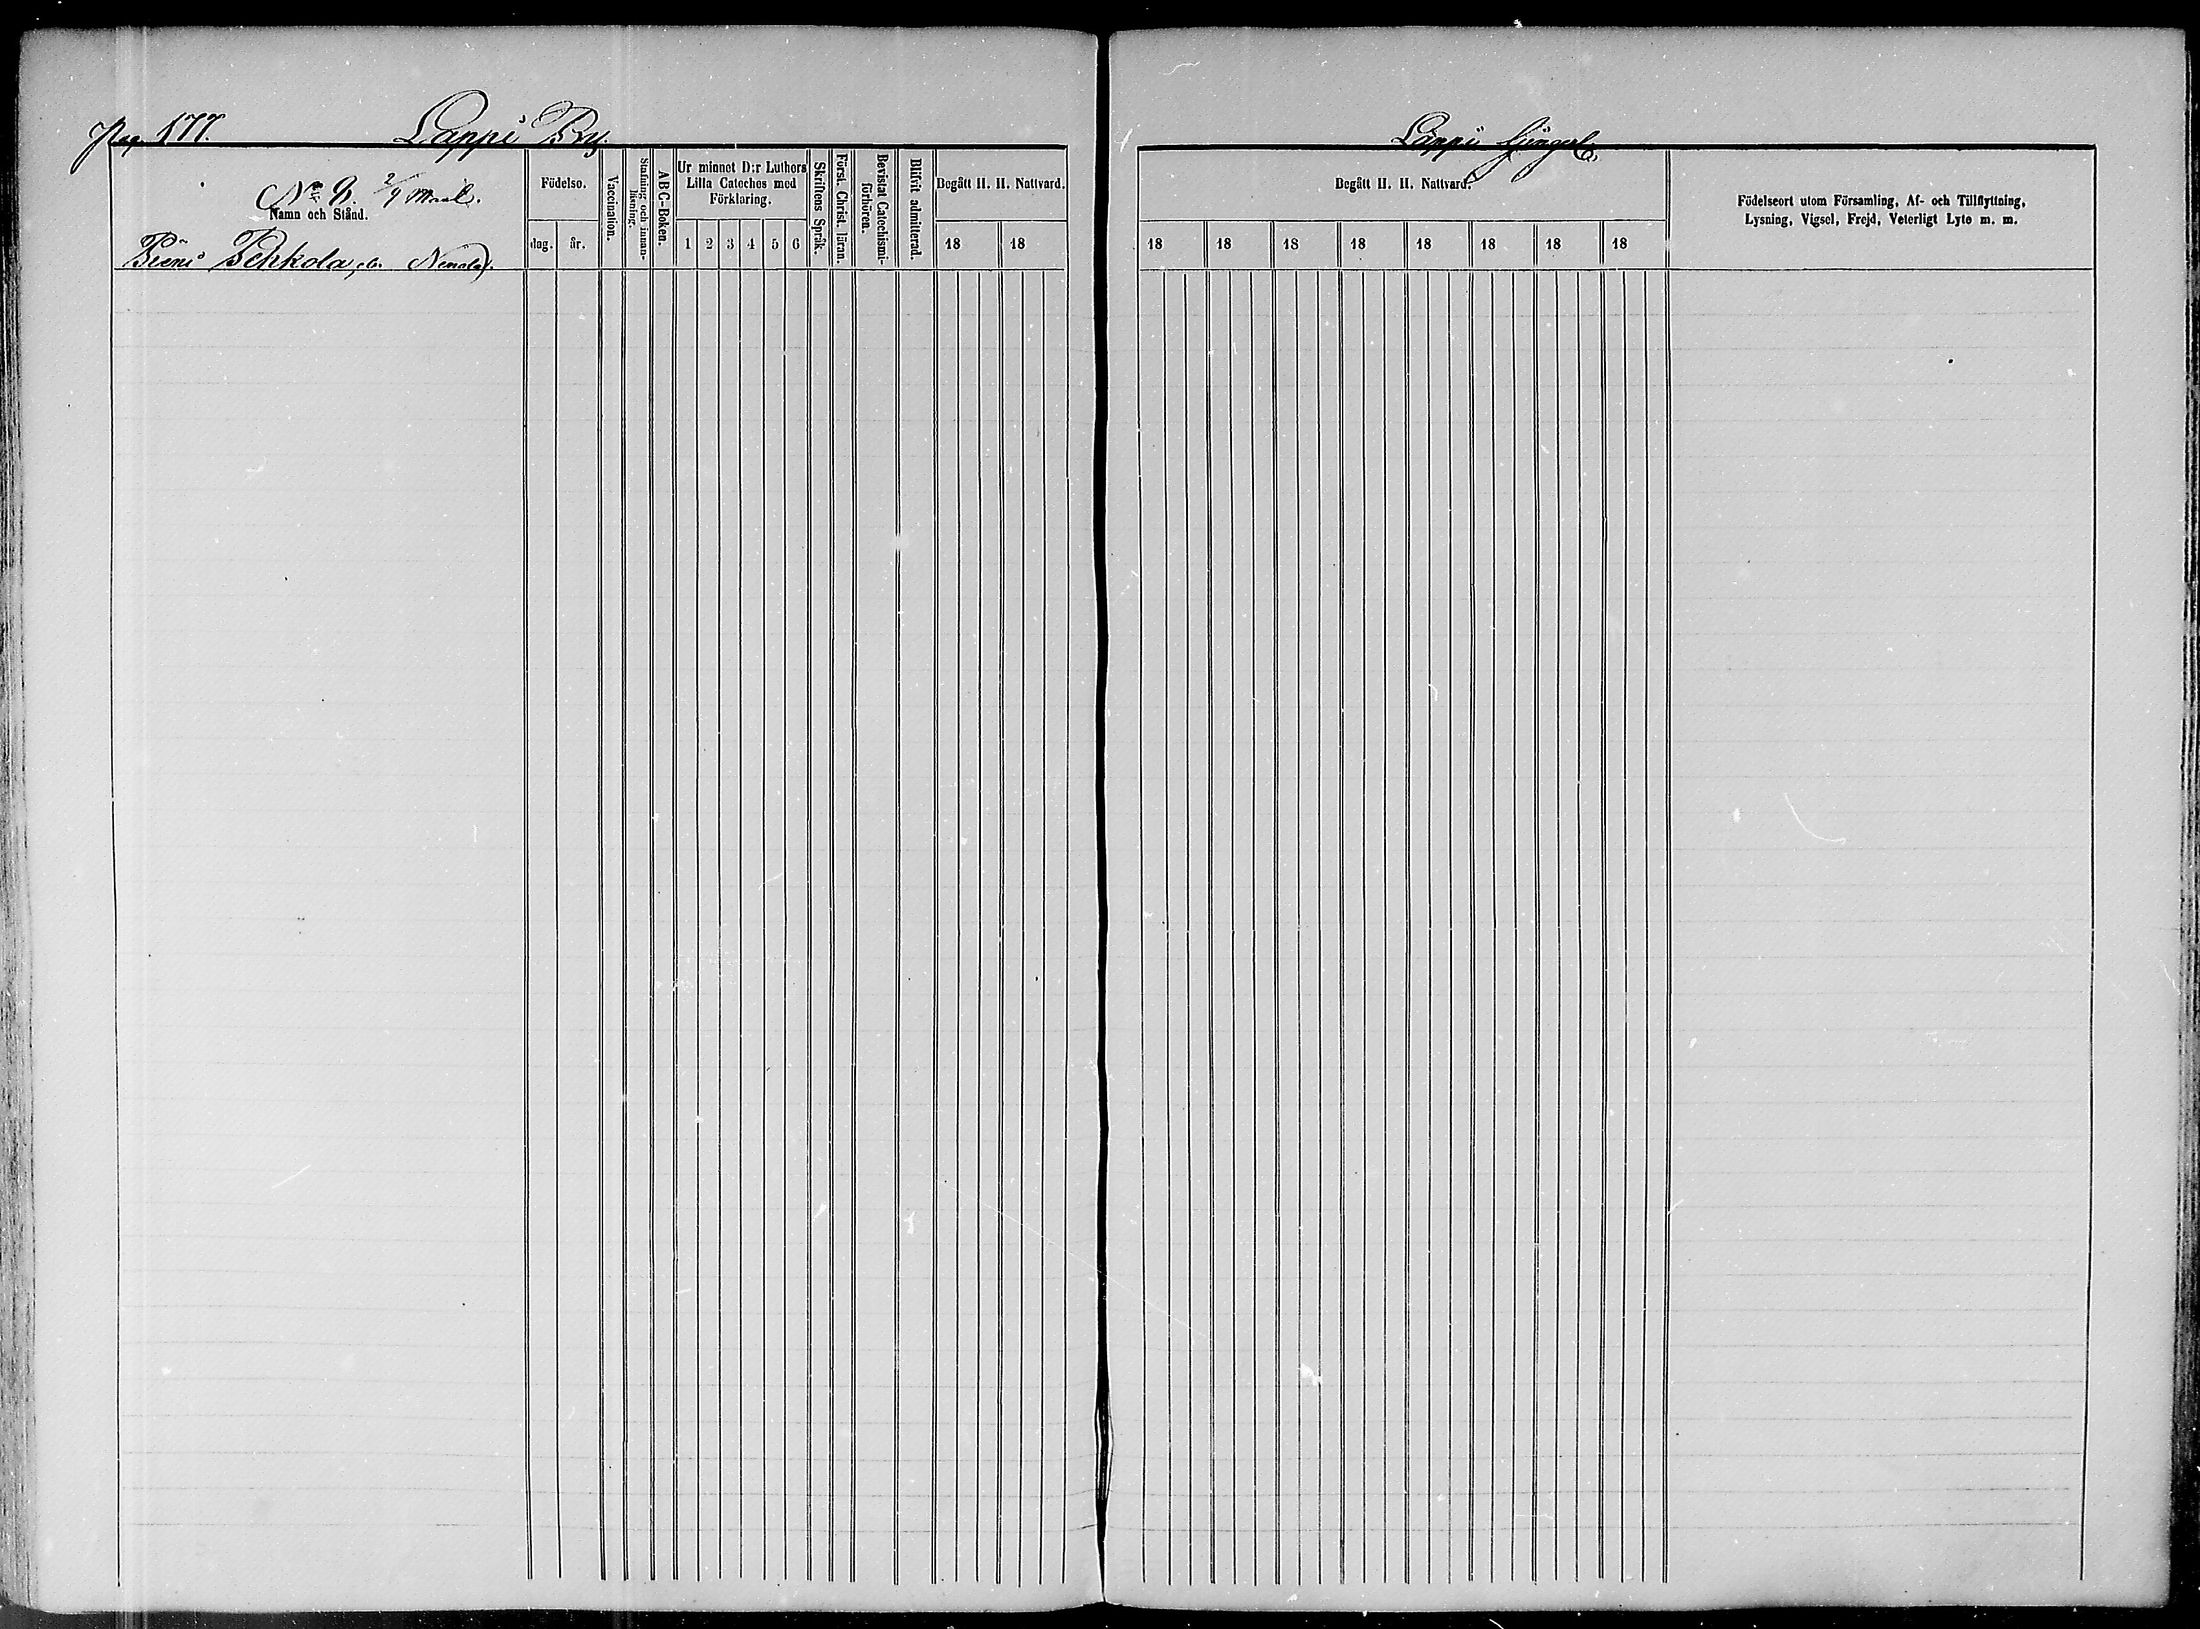 Pag. 177.
Lappi By.
No 8. 2/9 Mantl.
Namn och Stånd.
Födelse.
dag.
år.
Vaccination.
Stafning och innanläsning.
ABC-Boken.
Ur minnet D:r Luthers
Lilla Cateches med
Förklaring.
1 2 3 4 5 6
Skriftens Språk.
Först. Christ. läran.
Bevistat Catechismi-
förhören.
Blifvit admitterad.
Begått H. H. Nattvard.
18 18
Pieni Pehkola
Lappi
Begått H. H. Nattvard.
18 18 18 18 18 18 18 18
Födelseort utom Församling, Af- och Tillflyttning,
Lysning, Vigsel, Frejd, Veterligt Lyte m. m.